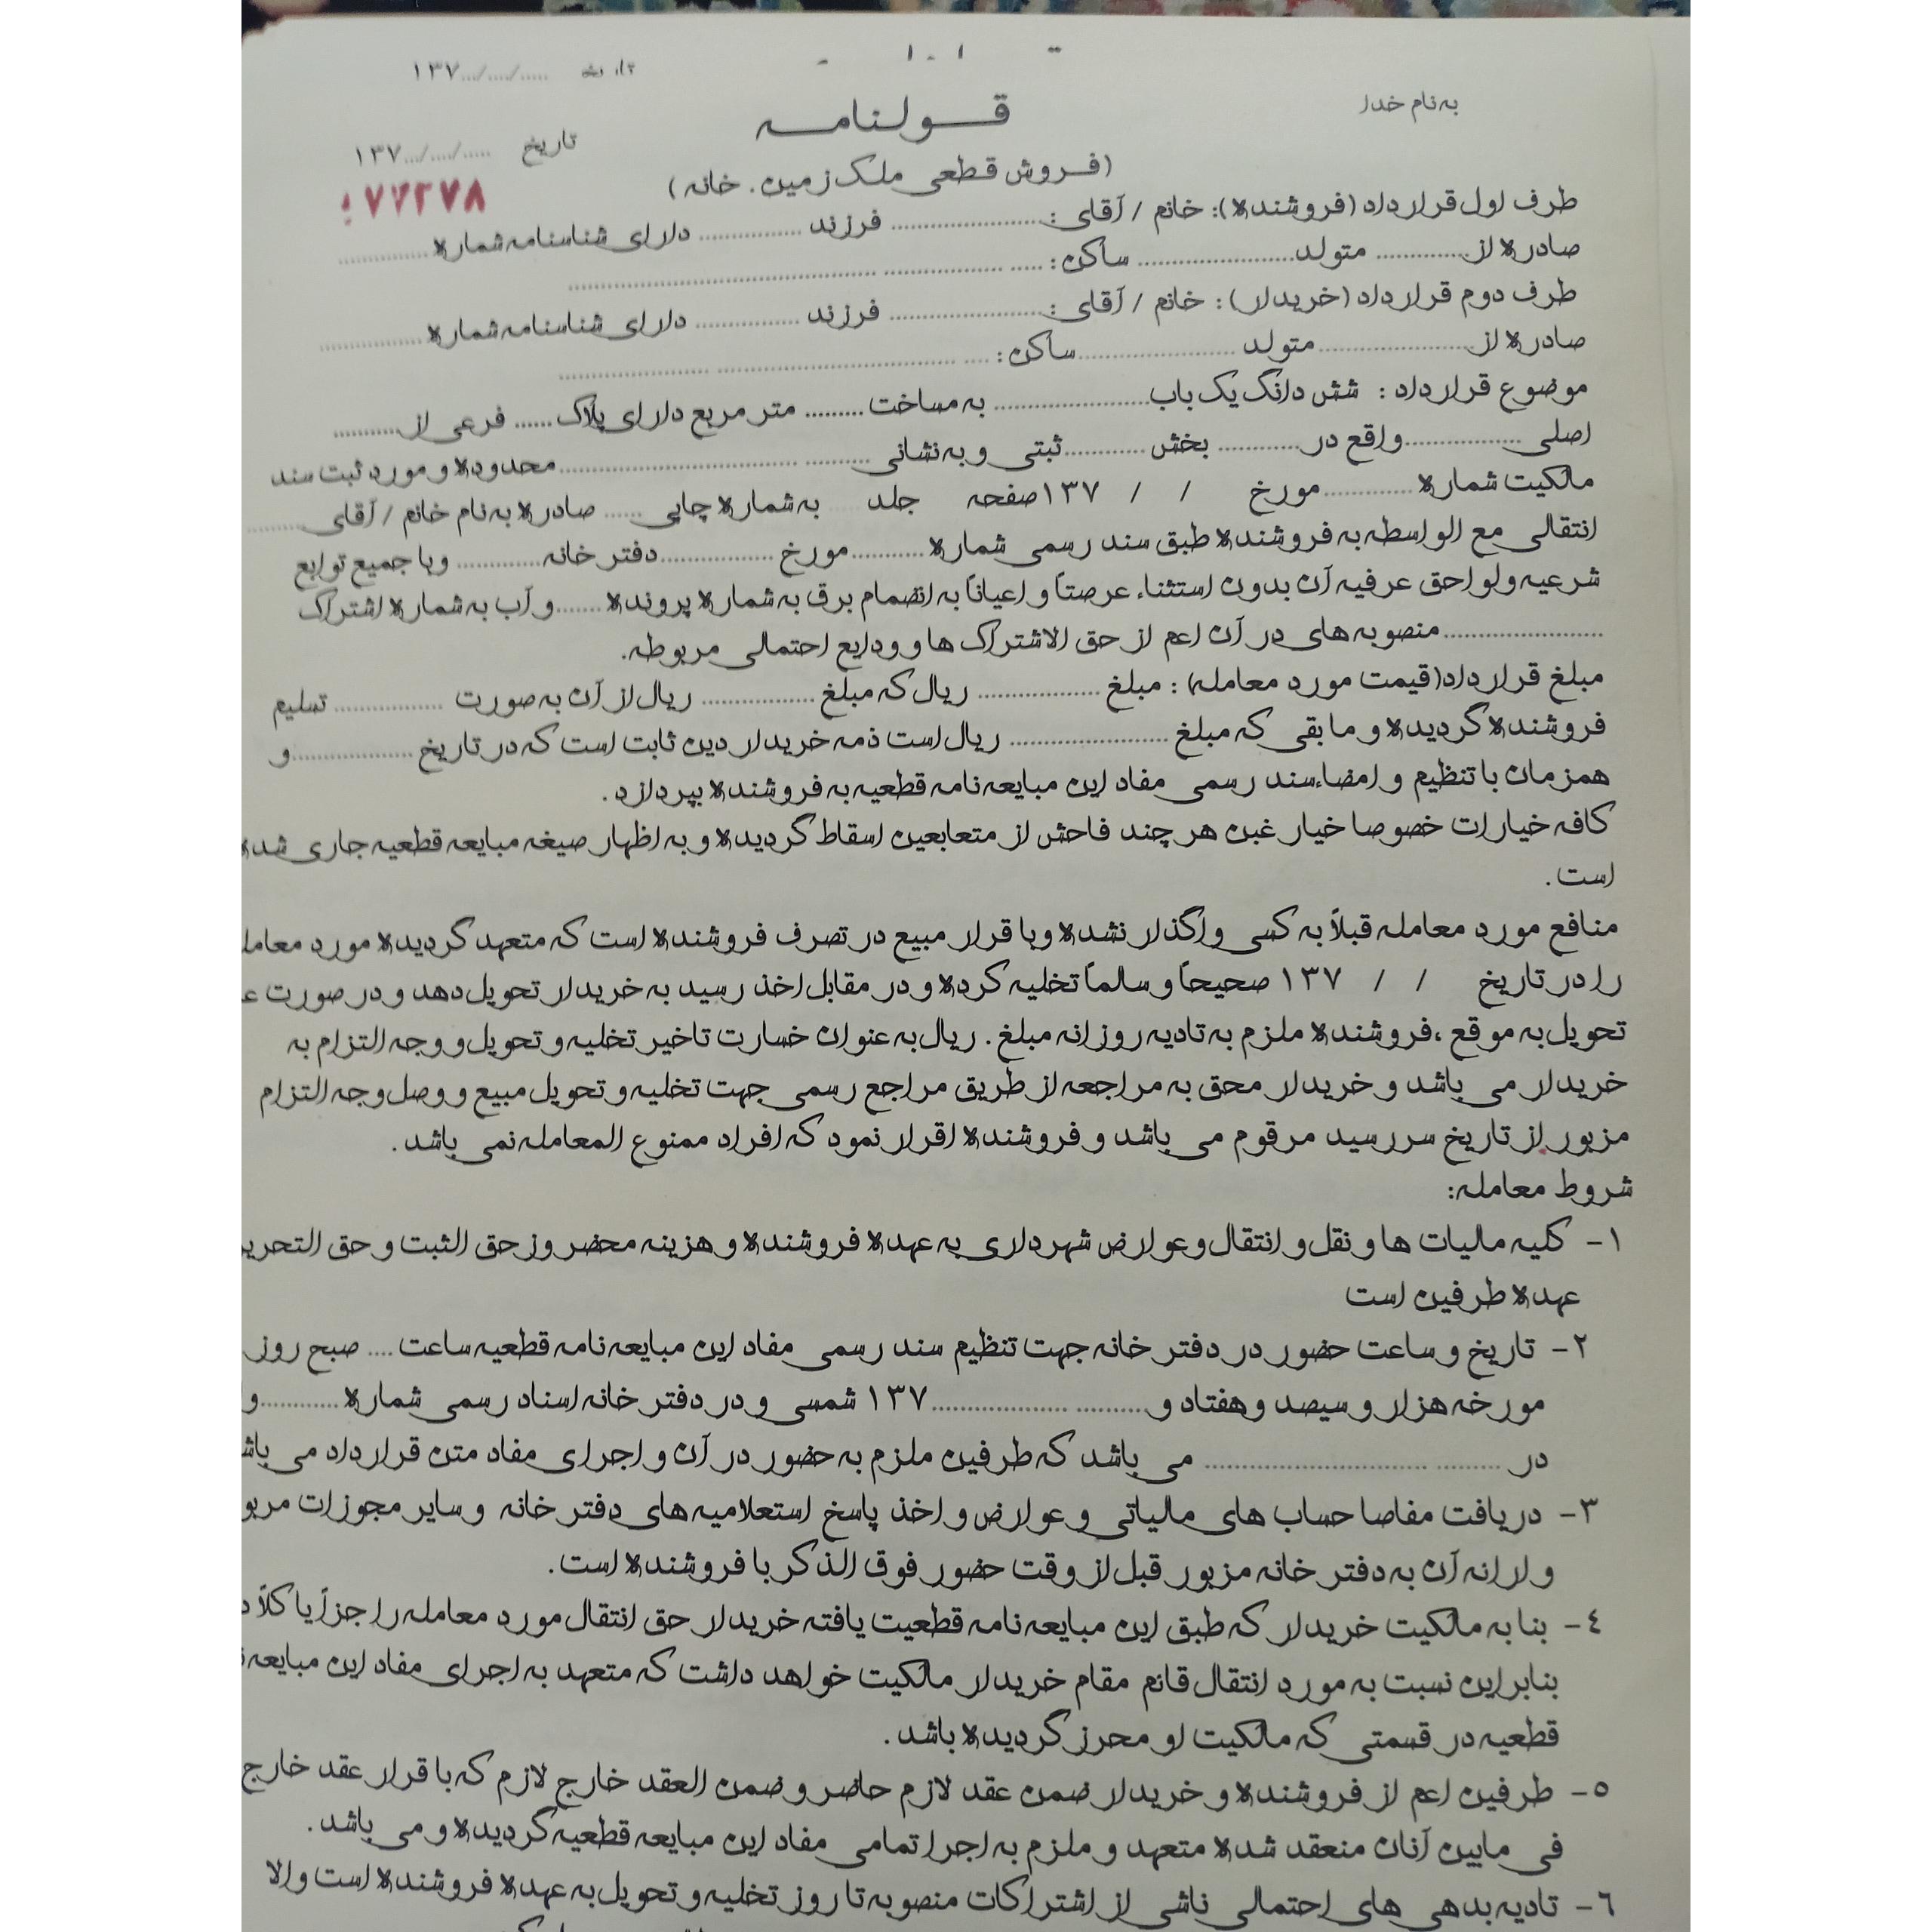 تاریخ ...../..../...۱۳۷
به نام خدا
قولنامه
تاریخ ...../..../...۱۳۷
(فروش قطعی ملک زمین . خانه)
۷۷۲۷۸
طرف اول قرارداد (فروشنده): خانم / آقای : ........................ فرزند ................ دارای شناسنامه شماره ..............
صادره از .............. متولد ........................ ساکن: ..... .................. ................................................
طرف دوم قرارداد (خریدار) : خانم / آقای : ........................ فرزند ................ دارای شناسنامه شماره ................
صادره از ........................ متولد ........................ ساکن: .... .................................... ........................
موضوع قرارداد : شش دانگ یک باب ........................ به مساخت ......... متر مربع دارای پلاک ...... فرعی از ..........
اصلی .................. واقع در ............. بخش ............. ثبتی و به نشانی .......... ..................................... محدوده و مورد ثبت سند
مالکیت شماره .............. مورخ / / ۱۳۷ صفحه جلد به شماره چاپی ...... صادره به نام خانم / آقای ........
انتقالی مع الواسطه به فروشنده طبق سند رسمی شماره ........... مورخ ................. دفتر خانه ............. و با جمیع توابع
شرعیه و لواحق عرفیه آن بدون استثناء عرصتاً و اعیاناً به انضمام برق به شماره پرونده ....... و آب به شماره اشتراک
......................... منصوبه های در آن اعم از حق الاشتراک ها و ودایع احتمالی مربوطه.
مبلغ قرارداد(قیمت مورد معامله) : مبلغ ................... ریال که مبلغ .................. ریال از آن به صورت ................. تسلیم
فروشنده گردیده و مابقی که مبلغ ......................... ریال است ذمه خریدار دین ثابت است که در تاریخ ................... و
همزمان با تنظیم و امضاء سند رسمی مفاد این مبایعه نامه قطعیه به فروشنده بپردازد .
کافه خیارات خصوصا خیار غبن هر چند فاحش از متعابعین اسقاط گردیده و به اظهار صیغه مبایعه قطعیه جاری شده
است .
منافع مورد معامله قبلاً به کسی واگذار نشده و با قرار مبیع در تصرف فروشنده است که متعهد گردیده مورد معامل
را در تاریخ / / ۱۳۷ صحیحاً و سالماً تخلیه کرده و در مقابل اخذ رسید به خریدار تحویل دهد و در صورت ع
تحویل به موقع ، فروشنده ملزم به تادیه روزانه مبلغ . ریال به عنوان خسارت تاخیر تخلیه و تحویل و وجه التزام به
خریدار می باشد و خریدار محق به مراجعه از طریق مراجع رسمی جهت تخلیه و تحویل مبیع و وصل وجه التزام
مزبور از تاریخ سررسید مرقوم می باشد و فروشنده اقرار نمود که افراد ممنوع المعامله نمی باشد .
شروط معامله:
۱- کلیه مالیات ها و نقل و انتقال و عوارض شهرداری به عهده فروشنده و هزینه محضر و زحق الثبت و حق التحریر
عهده طرفین است
۲- تاریخ و ساعت حضور در دفتر خانه جهت تنظیم سند رسمی مفاد این مبایعه نامه قطعیه ساعت .... صبح روز
مورخه هزار و سیصد و هفتاد و .......... ..................... ۱۳۷ شمسی و در دفتر خانه اسناد رسمی شماره ............ و
در .......... ................................... می باشد که طرفین ملزم به حضور در آن و اجرای مفاد متن قرارداد می باش
۳- دریافت مفاصا حساب های مالیاتی و عوارض و اخذ پاسخ استعلامیه های دفتر خانه و سایر مجوزات مربو
و ارائه آن به دفتر خانه مزبور قبل از وقت حضور فوق الذکر با فروشنده است .
۴- بنا به مالکیت خریدار که طبق این مبایعه نامه قطعیت یافته خریدار حق انتقال مورد معامله را جزاً یا کلاً د
بنابراین نسبت به مورد انتقال قائم مقام خریدار مالکیت خواهد داشت که متعهد به اجرای مفاد این مبایعه ن
قطعیه در قسمتی که مالکیت او محرز گردیده باشد .
۵- طرفین اعم از فروشنده و خریدار ضمن عقد لازم حاضر و ضمن العقد خارج لازم که با قرار عقد خارج
فی مابین آنان منعقد شده متعهد و ملزم به اجرا تمامی مفاد این مبایعه قطعیه گردیده و می باشد .
۶- تادیه بدهی های احتمالی ناشی از اشتراکات منصوبه تا روز تخلیه و تحویل به عهده فروشنده است والا